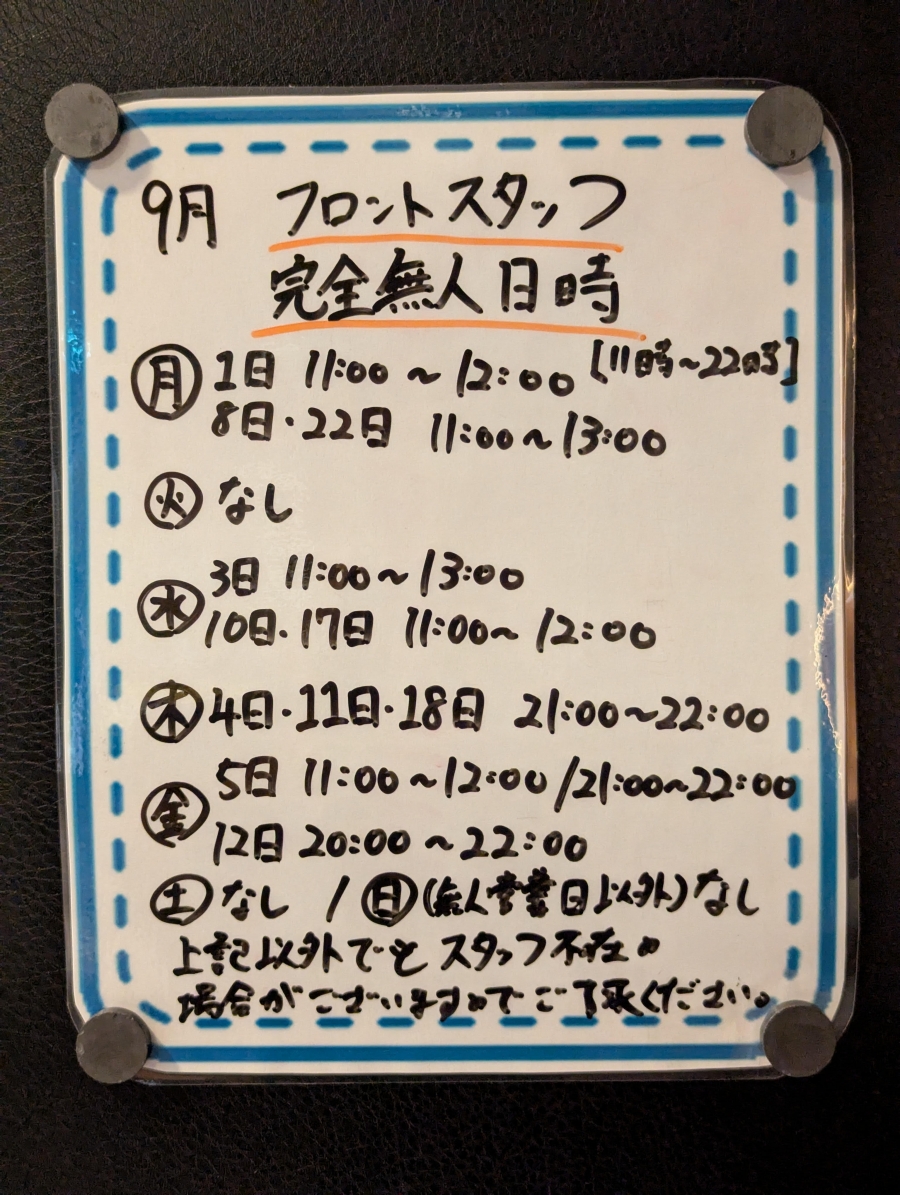 9月 フロントスタッフ
完全無人日時
[11時~22時]
㊊ 1日 11:00~12:00
8日・22日 11:00~13:00
㊋ なし
㊌ 3日 11:00~13:00
10日・17日 11:00~12:00
㊍ 4日・11日・18日 21:00~22:00
㊎ 5日 11:00~12:00/21:00~22:00
12日 20:00~22:00
㊏ なし / ㊐(無人営業日以外)なし
上記以外でもスタッフ不在の
場合がございますのでご了承ください。